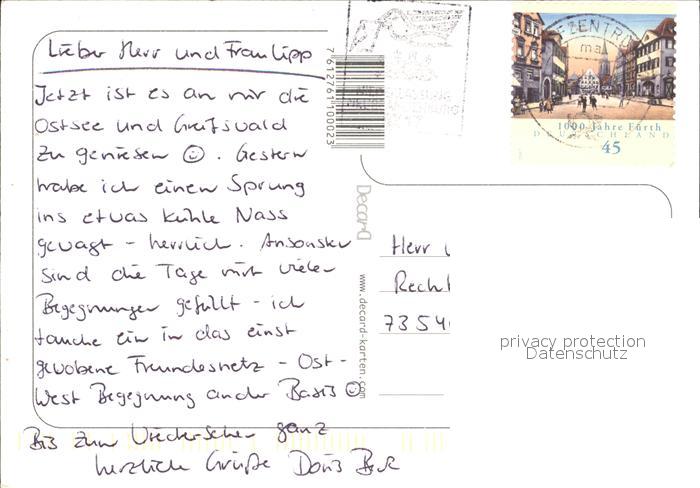 Lieber Herr und Frau Lipp
Jetzt ist es an mir die
Ostsee und Greifswald
zu geniesen ☺. Gestern
habe ich einen Sprung
ins etwas kühle Nass
gewagt - herrlich. Ansonsten
sind die Tage mit vielen
Begegnungen gefüllt - ich
tauche ein in das einst
gewobene Freundesnetz - Ost-
West Begegnung an der Basis ☺
Bis zum Wiedersehen ganz
herzlich Grüße Doris Beck
7612761100023
Decard
www.decard-karten.com
EZENTRUM
1000 Jahre Fürth
DEUTSCHLAND
45
Herr
Recht
7354
privacy protection
Datenschutz